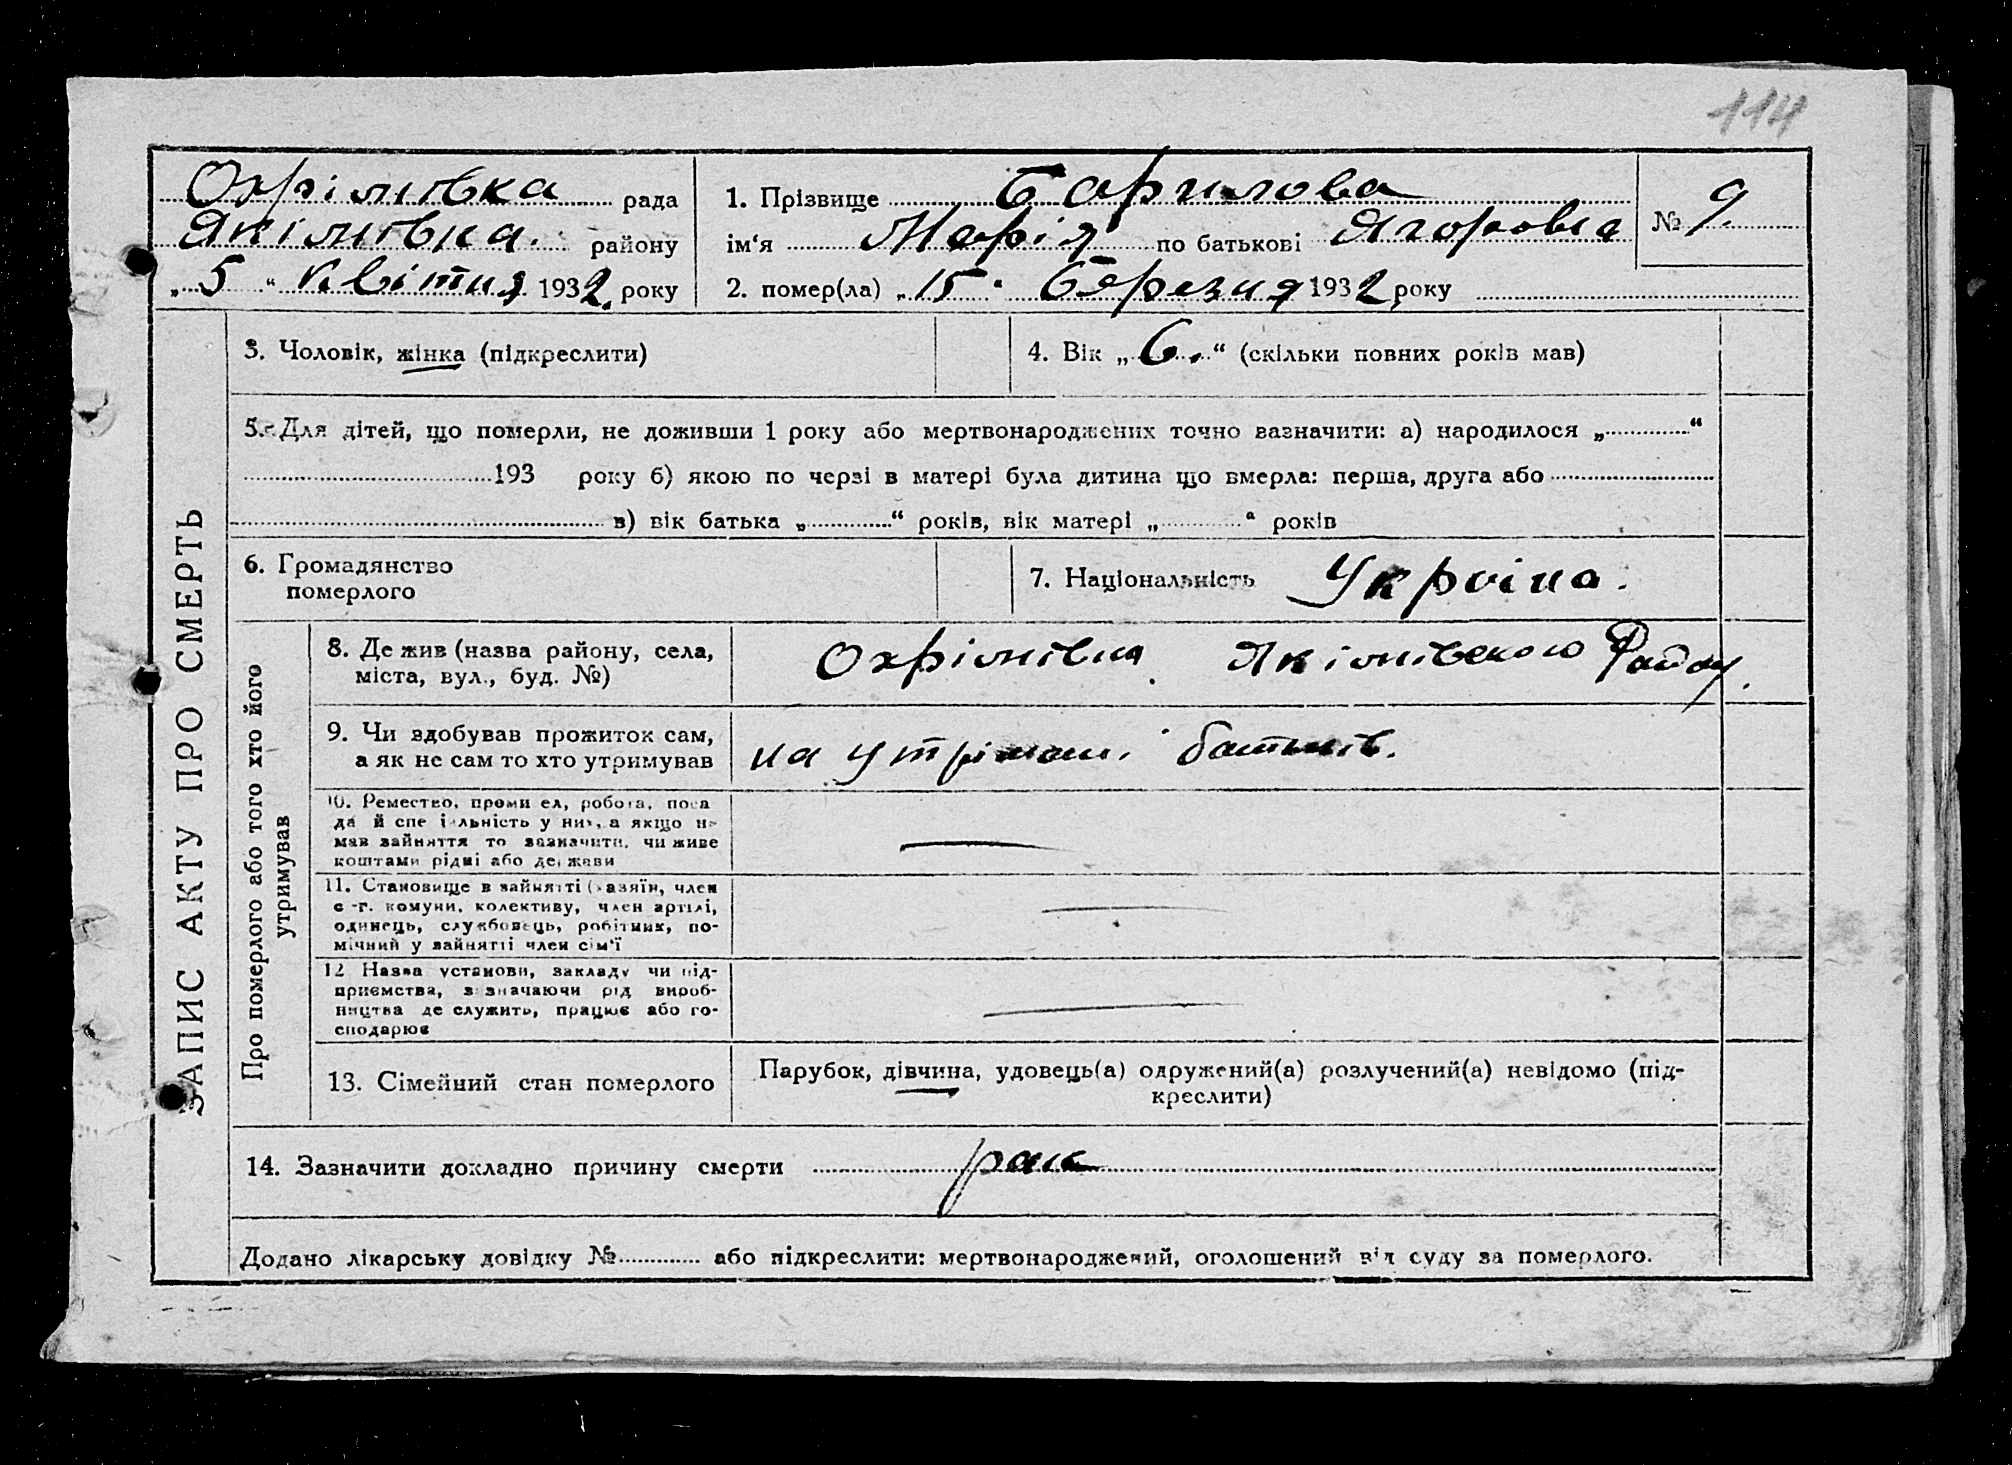 114
Охрімівка рада
Якімівка району
„ 5 “ Квітня 1932 року
1. Прізвище
ім‘я Марія по батькові Ягоровна
2. помер(ла) „ 15 “ березня 1932 року
№ 9.
ЗАПИС АКТУ ПРО СМЕРТЬ
3. Чоловік, жінка (підкреслити)
4. Вік „ 6. “ (скільки повних років мав)
5. Для дітей, що померли, не доживши 1 року або мертвонароджених точно вазначити: а) народилося „ “
193 року б) якою по черзі в матері була дитина що вмерла: перша, друга або
в) вік батька „ “ років, вік матері „ “ років
6. Громадянство
померлого
7. Національність Україна.
Про померлого або того хто його
утримував
8. Де жив (назва району, села,
міста, вул., буд. №)
Охрімівка Якімівского Району.
9. Чи здобував прожиток сам,
а як не сам то хто утримував
на утрімані батьків.
10. Ремество, проми ел, робота, поса
да й спе іальність у них, а якщо не
мав зайняття то зазначити, чи живе
коштами рідні або держави
11. Становище в зайнятті (хазяїн, член
с -г. комуни, колективу, член артілі,
одинець, службовець, робітник, по-
мічний у зайнятті член сім‘ї
12 Назва установи, закладу чи під-
приємства, зазначаючи рід вироб-
ництва де служить, працює або го-
сподарює
13. Сімейний стан померлого
Парубок, дівчина, удовець(а) одружений(а) розлучений(а) невідомо (під-
креслити)
14. Зазначити докладно причину смерти рак
Додано лікарську довідку № або підкреслити: мертвонароджений, оголошений від суду за померлого.